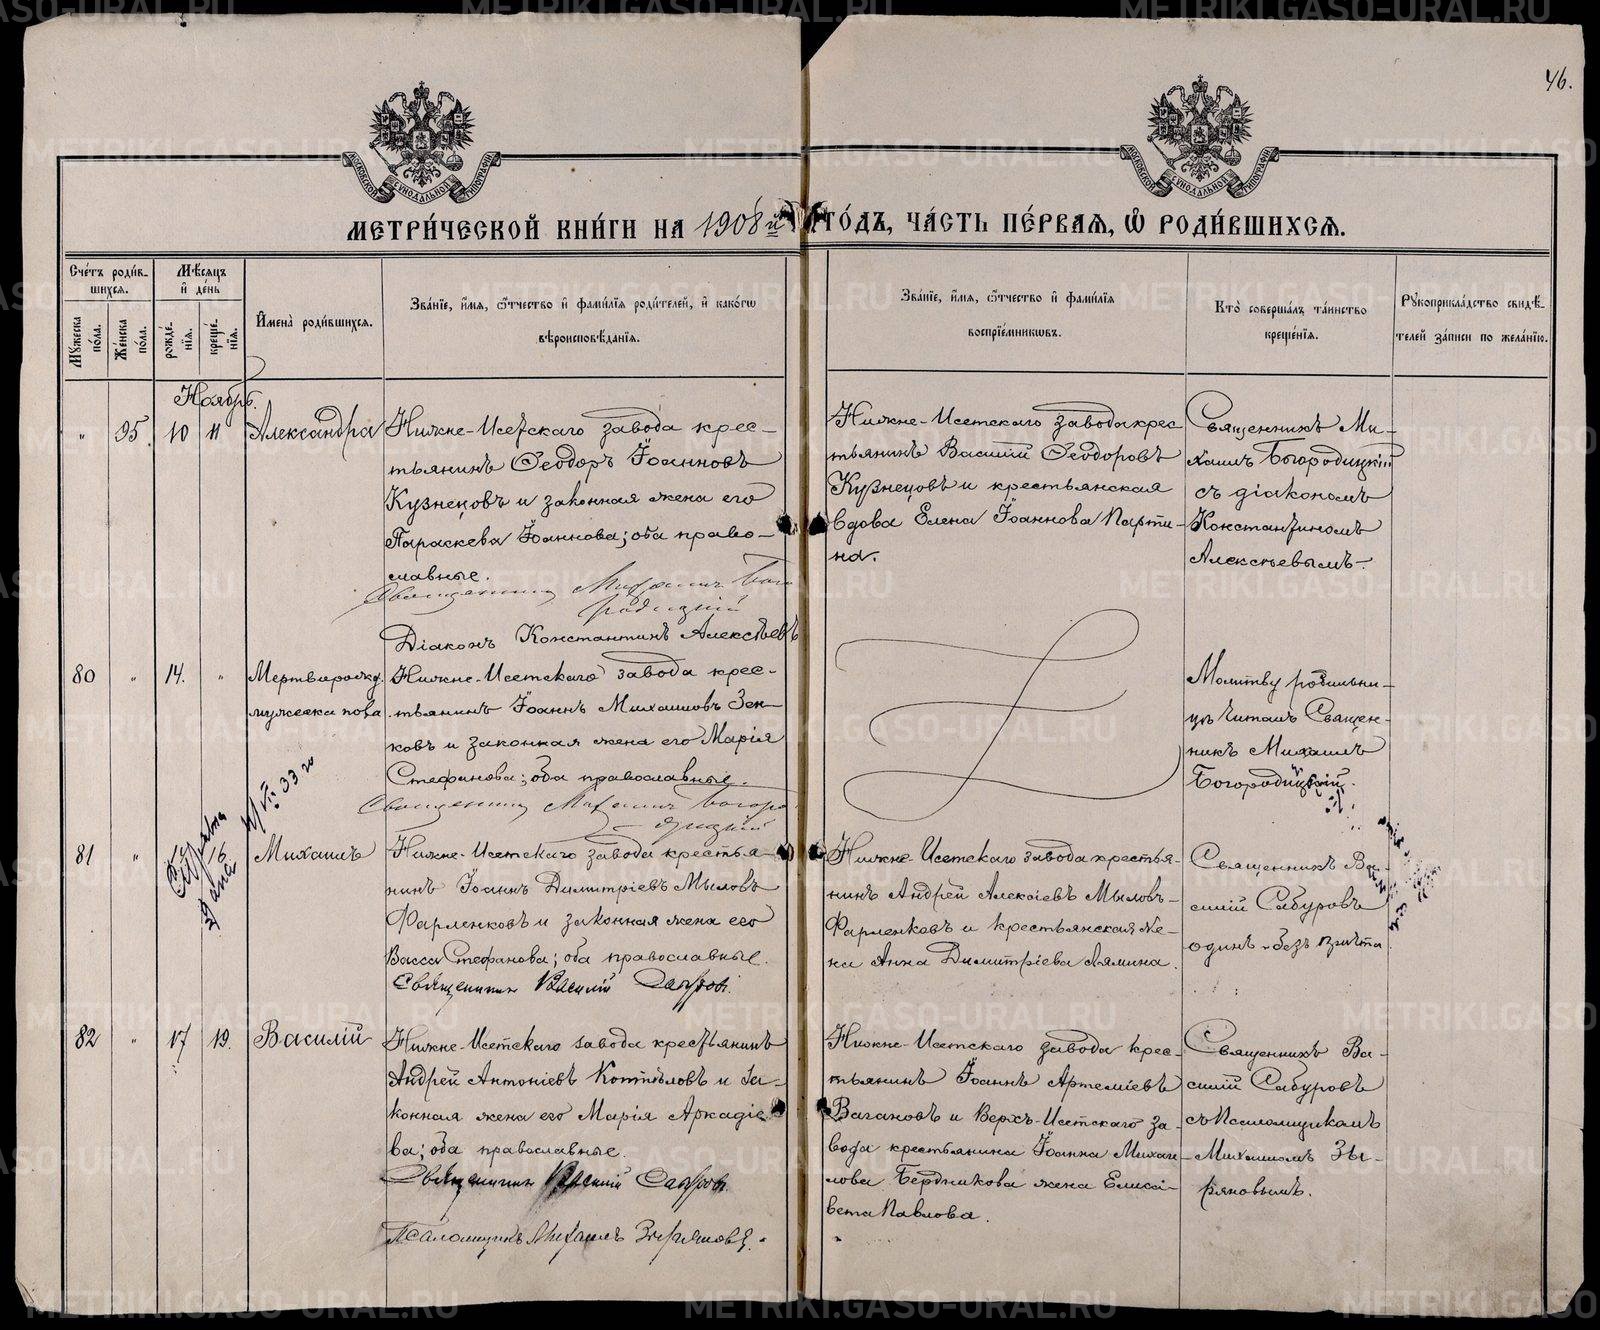 46.
МОСКОВСКОЙ СУНОДАЛЬНОЙ ТИПОГРАФІИ
МОСКОВСКОЙ СУНОДАЛЬНОЙ ТИПОГРАФІИ
МЕТРИ́ЧЕСКОЙ КНИ́ГИ НА 1908й ГО́ДЪ, ЧА́СТЬ ПЕ́РВАЯ, Ѽ РОДИ́ВШИХСЯ.
Сче́тъ роди́в-
шихся.
Мꙋ́жеска по́ла.
Же́нска по́ла.
Мѣ́сяцъ
и де́нь
рожде́-
нїя.
креще́-
нїя.
И҆мена̀ роди́вшихся.
Зва́нїе, и҆́мя, ѻ҆́тчество и҆ фами́лїя роди́телей, и҆ како́гѡ
вѣроисповѣ́данїя.
Зва́нїе, и҆́мя, ѻ҆́тчество и҆ фами́лїя
воспрїе́мникѡвъ.
Кто̀ соверша́лъ та́инство
креще́нїя.
Рꙋкоприкла́дство свидѣ́-
телей за́писи по жела́нїю.
Ноябрь.
" 95. 10 11 Александра
Нижне-Исетскаго завода крес-
тьянинъ Ѳеодоръ Іоанновъ
Кузнецовъ и законная жена его
Параскева Іоаннова; оба право-
славные.
Священникъ Михаилъ Бого
родицкій
Діаконъ Константинъ Алексѣевъ
Нижне-Исетскаго завода крес
тьянинъ Василій Ѳеодоровъ
Кузнецовъ и крестьянская
вдова Елена Іоаннова Парти-
на.
Священникъ Ми-
хаилъ Богородицкій
съ діакономъ
Константиномъ
Алексѣевымъ.
80 " 14. " Мертворожд.
мужеска пола
Нижне-Исетскаго завода крес-
тьянинъ Іоаннъ Михаиловъ Зен-
ковъ и законная жена его Марія
Стефанова; оба православные.
Священникъ Михаилъ Богоро
дицкій
Молитву родильни-
цѣ читалъ Священ-
никъ Михаилъ
Богородицкій.
81 " 16 Михаилъ
Нижне-Исетскаго завода крестья-
нинъ Іоаннъ Димитріевъ Мыловъ
Фарленковъ и законная жена его
Васса Стефанова; оба православные.
Священникъ Василій Сабуровъ.
Нижне-Исетскаго завода крестья-
нинъ Андрей Алексіевъ Мыловъ-
Фарленковъ и крестьянская же-
на Анна Димитріева Лямина.
Священникъ Ва-
силій Сабуровъ
одинъ безъ причта
82 " 17 19. Василій
Нижне-Исетскаго завода крестьянинъ
Андрей Антоніевъ Котѣловъ и за-
конная жена его Марія Аркадіе
ва; оба православные.
Священникъ Василій Сабуровъ.
Псаломщикъ Михаилъ Зыряновъ.
Нижне-Исетскаго завода крес-
тьянинъ Іоаннъ Артеміевъ
Вагановъ и Верхъ-Исетскаго за-
вода крестьянина Іоанна Михаи-
лова Бердникова жена Елиса-
вета Павлова.
Священникъ Ва-
силій Сабуровъ
съ Псаломщикомъ
Михаиломъ Зы-
ряновымъ.